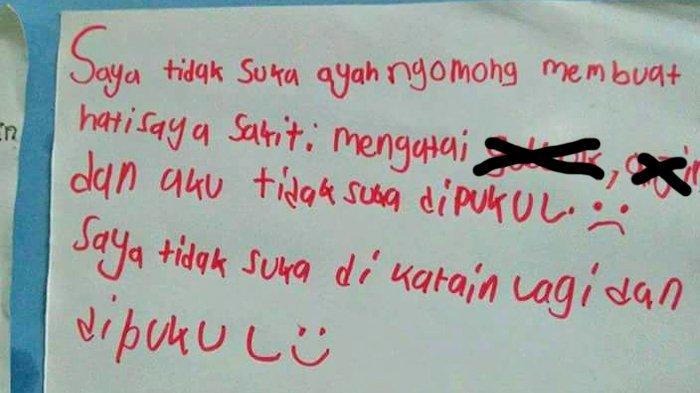 Saya tidak suka ayah ngomong membuat
hati saya sakit: mengatai
dan aku tidak suka dipukul. :(
Saya tidak suka di katain lagi dan
dipukul :)